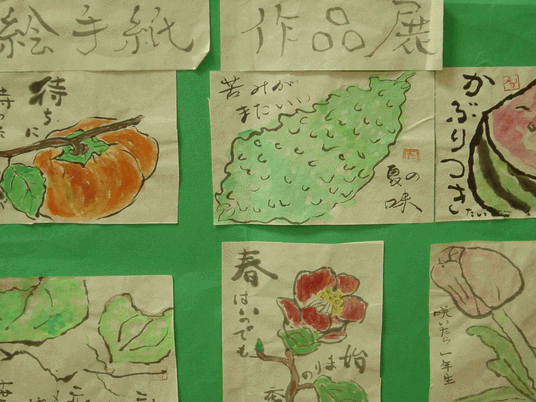 絵手紙
作品展
待ちに
待った
苦みが
またいい
夏の
味
かぶりつき
たい
春
はいつでも
始
のりま
咲いたら一年生